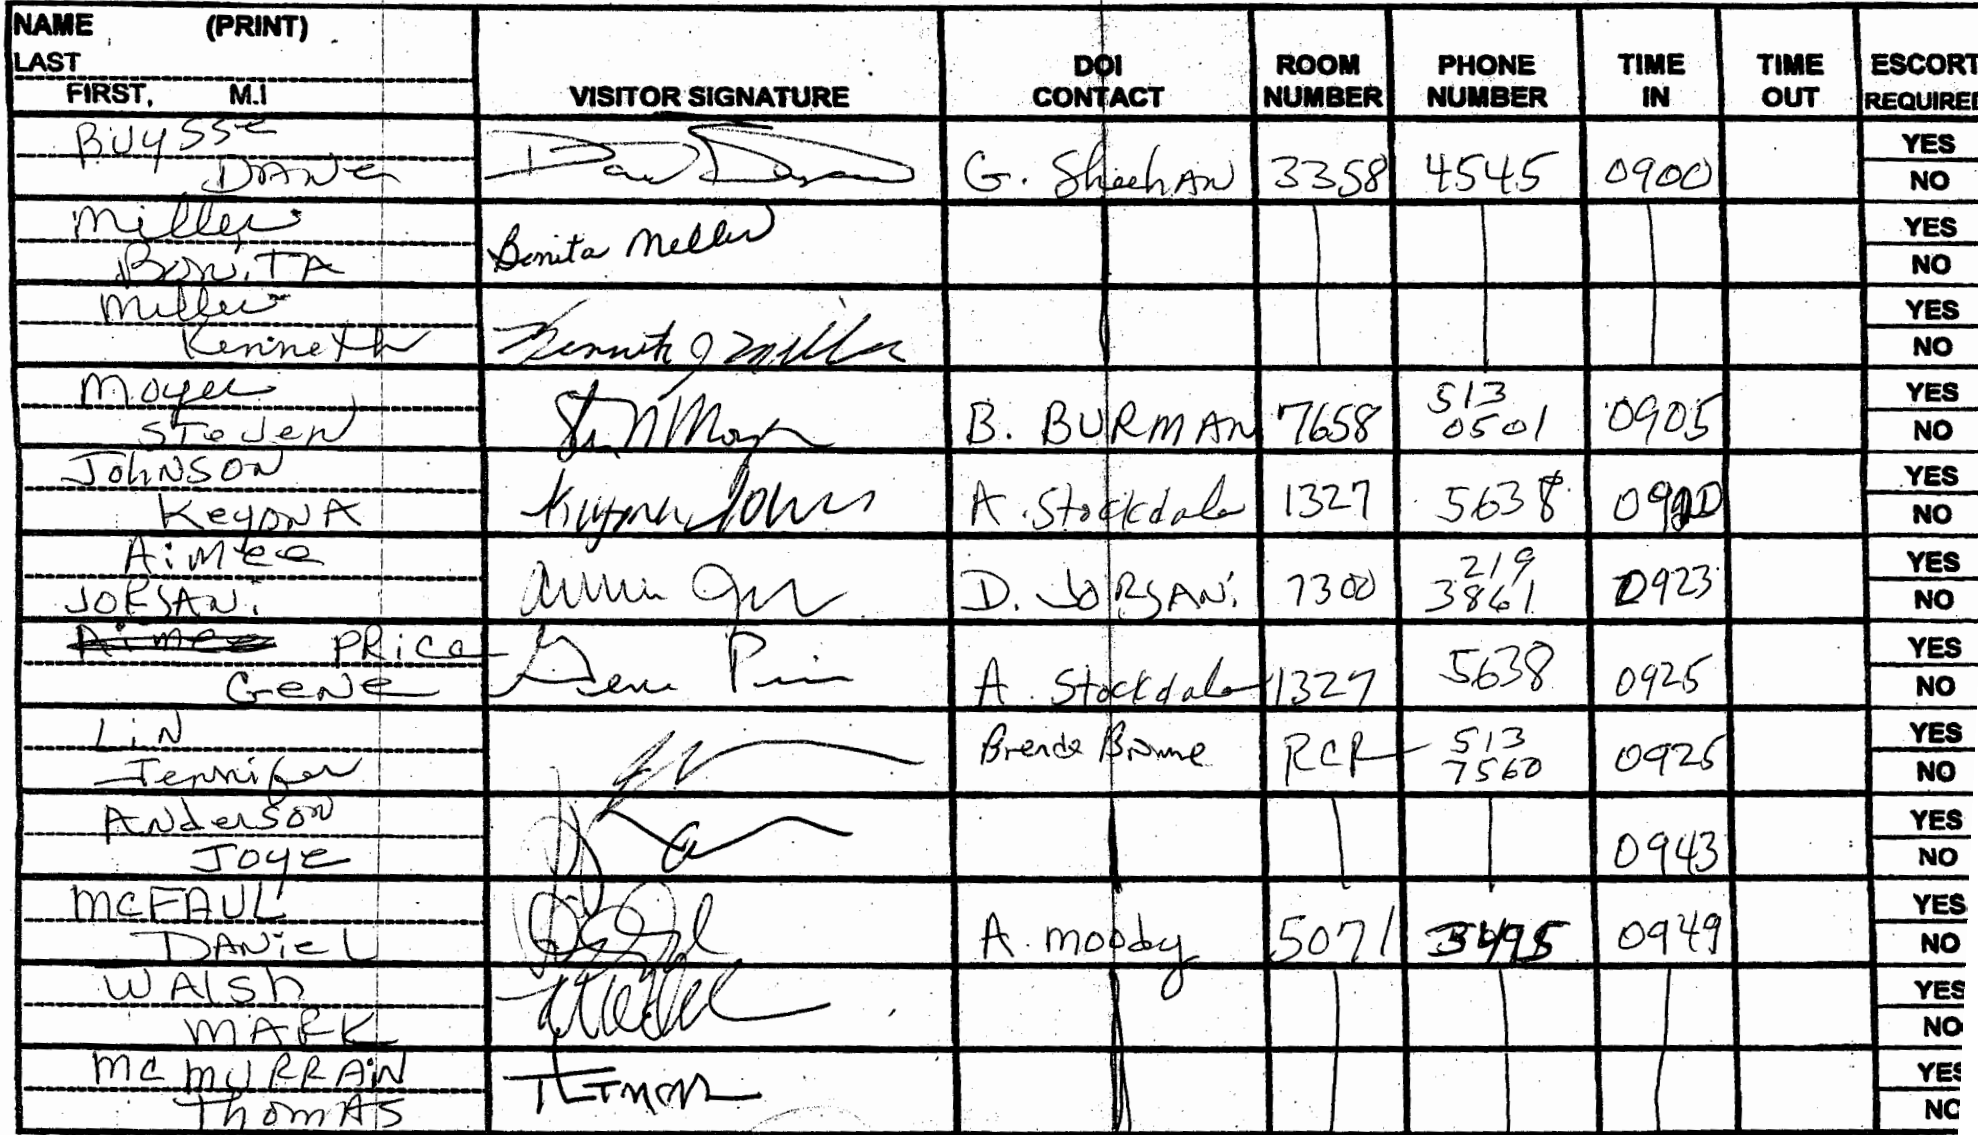 NAME (PRINT)
LAST
FIRST, M.I
VISITOR SIGNATURE
DOI
CONTACT
ROOM
NUMBER
PHONE
NUMBER
TIME
IN
TIME
OUT
ESCORT
REQUIRED
BUYSSe
DIANe
G. SheehAN 3358 4545 0900
YES
NO
Miller
BoNiTA
Bonita Miller
YES
NO
Miller
Kenneth
Kenneth J Miller
YES
NO
Moyer
STeVeN
B. BURMAN 7658 513 0501 0905
YES
NO
JohNSON
KeyonA
A. Stockdale 1327 5638
YES
NO
AiMee
JORJANi
D. JORJANi 7300 219 3861 0923
YES
NO
Aimee PRice
GeNe
Gene Price
A. Stockdale 1327 5638 0925
YES
NO
LiN
Jennifer
Brenda Browne RCR 513 7560 0925
YES
NO
ANderSoN
Joye
0943
YES
NO
MCFAUL
DANieL
A. Moody 5071 3495 0949
YES
NO
WAlSh
MARK
YES
NO
MCMURRAiN
ThomAS
YES
NO